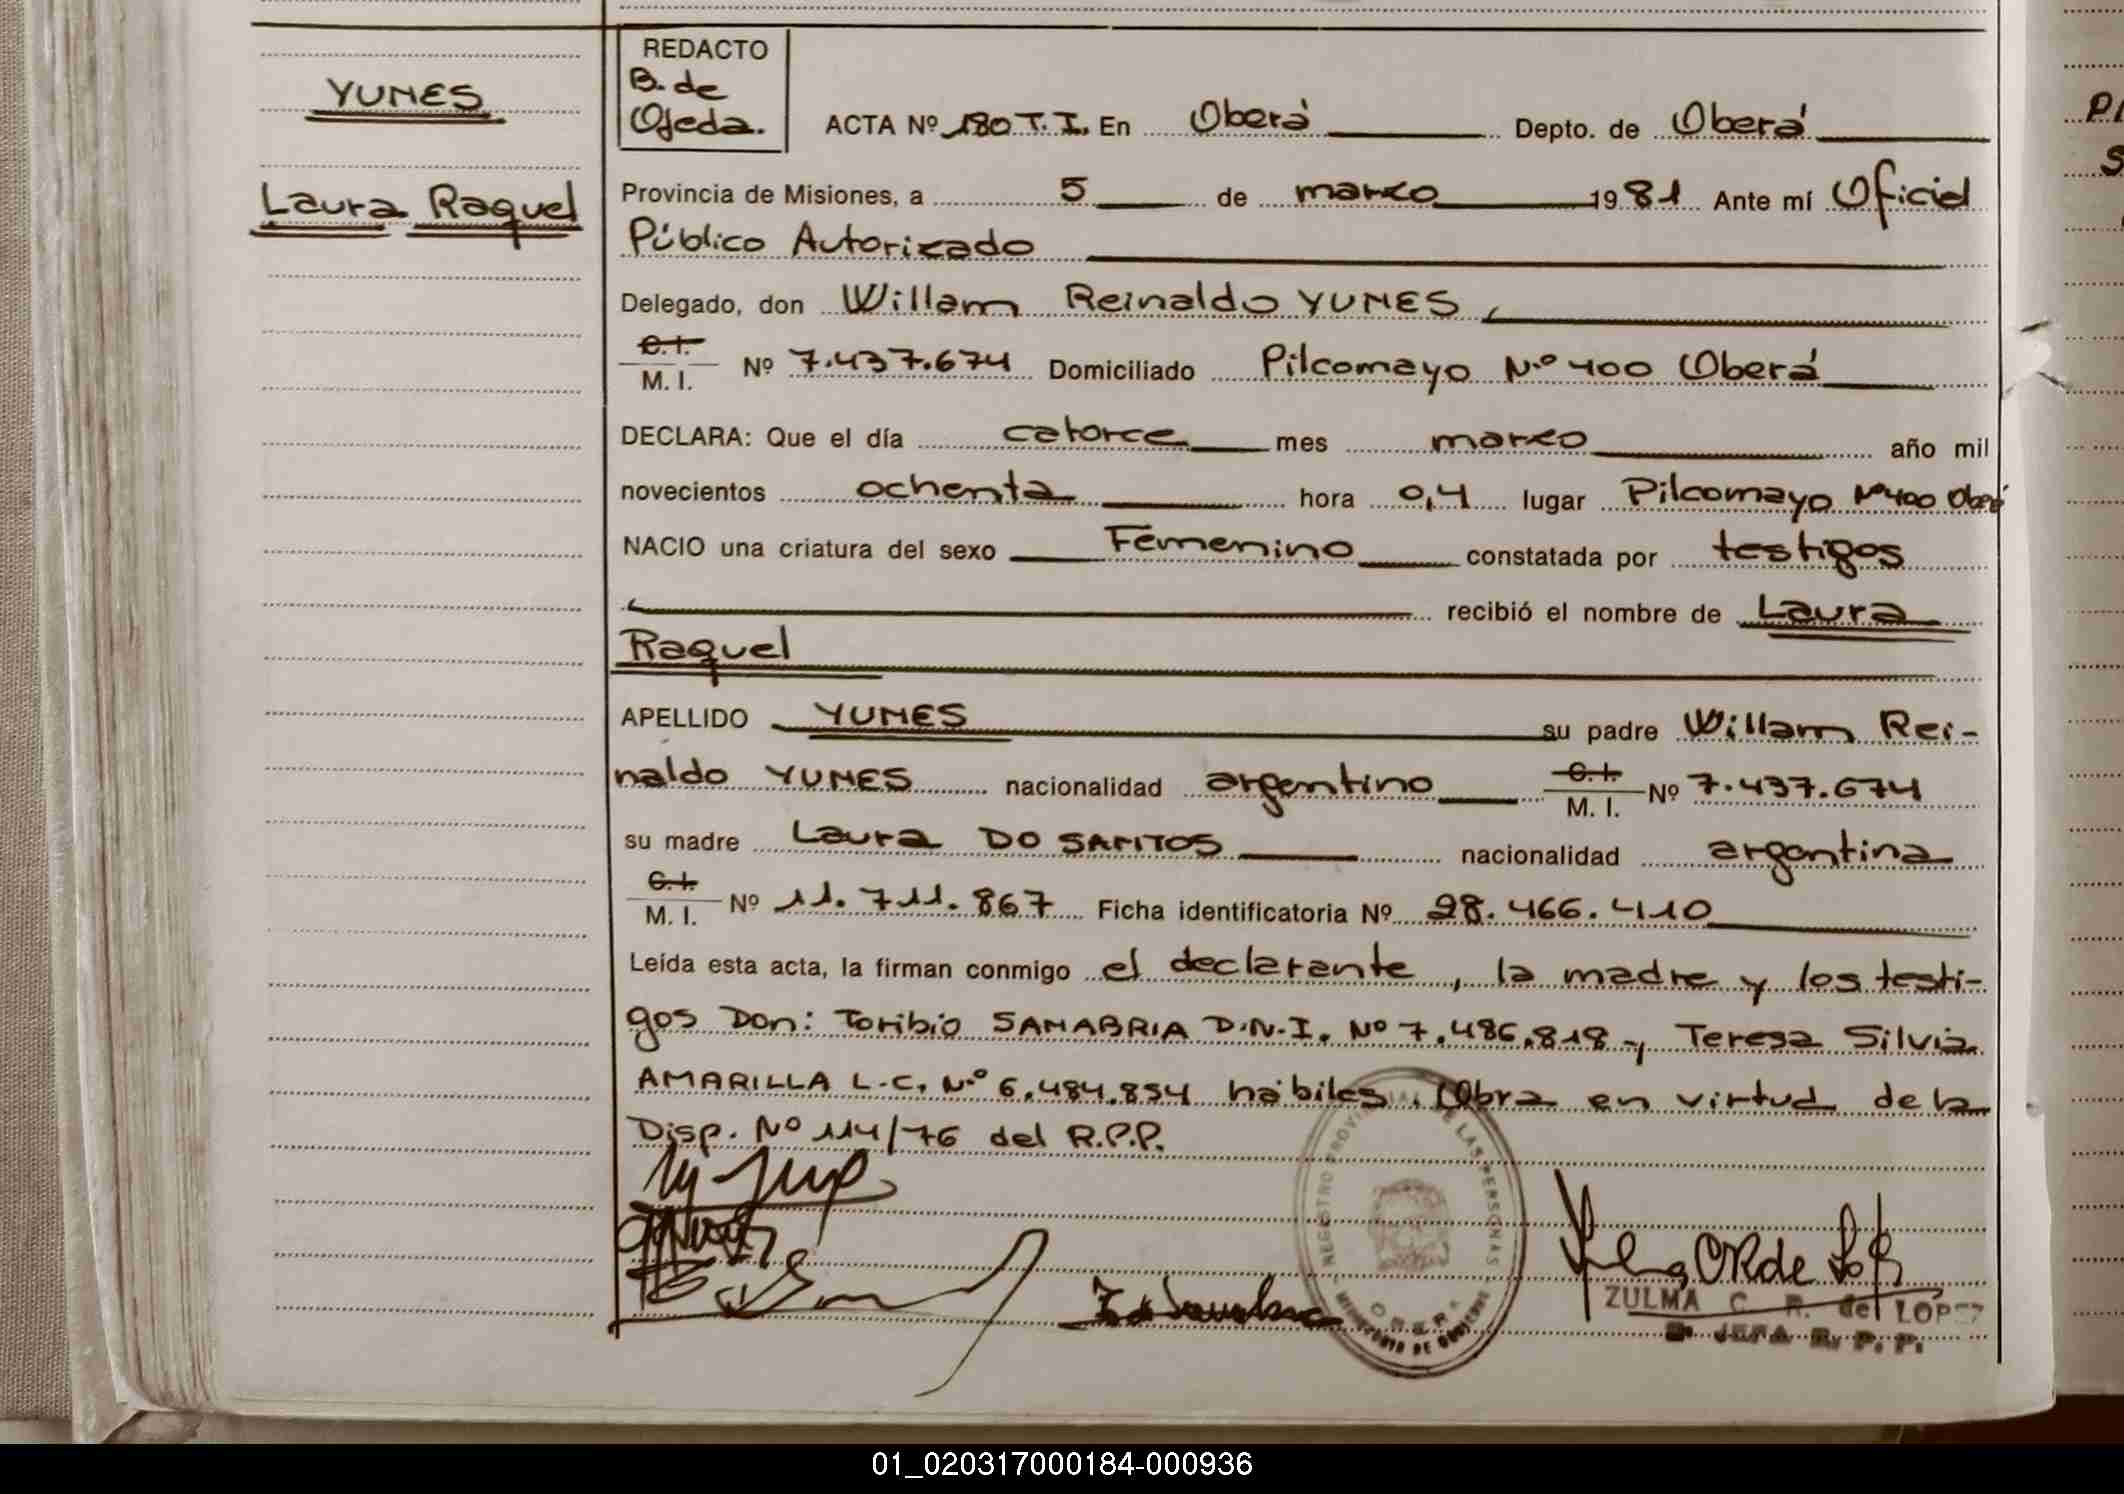 REDACTO
B. de
Ojeda.
YUNES
Laura Raquel
ACTA Nº 180 T.I. En Oberá Depto. de Oberá
Provincia de Misiones, a 5 de marzo 1981 Ante mí Oficial
Público Autorizado
Delegado, don Willam Reinaldo YUNES,
C. I.
M. I. Nº 7.437.674 Domiciliado Pilcomayo N.º 400 Oberá
DECLARA: Que el día catorce mes marzo año mil
novecientos ochenta hora 0,4 lugar Pilcomayo Nº 400 Oberá
NACIO una criatura del sexo Femenino constatada por testigos
recibió el nombre de Laura
Raquel
APELLIDO YUNES su padre Willam Rei-
naldo YUNES nacionalidad argentino C. I. M. I. Nº 7.437.674
su madre Laura DO SANTOS nacionalidad argentina
C. I.
M. I. Nº 11.711.867 Ficha identificatoria Nº 28.466.410
Leída esta acta, la firman conmigo el declarante, la madre y los testi-
gos Don: Toribio SANABRIA D.N.I. Nº 7.486.818 y Teresa Silvia
AMARILLA L.C. N.º 6.484.854 hábiles. Obra en virtud de la
Disp. Nº 114/76 del R.P.P.
REGISTRO PROVINCIAL DE LAS PERSONAS
OBERA
MINISTERIO DE GOBIERNO
ZULMA C. R. de LOPEZ
JEFA R. P. P.
01_020317000184-000936